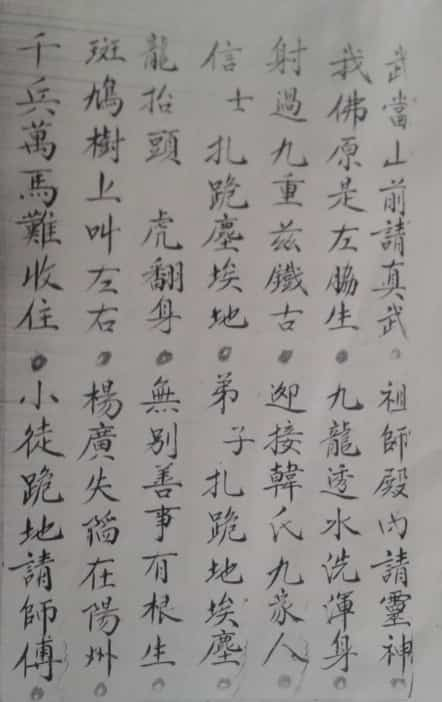 武當山前請真武。祖師殿内請靈神。
我佛原是左脇生。九龍透水洗渾身。
射過九重茲鐵古。迎接韓氏九家人。
信士扎跪塵埃地。弟子扎跪地埃塵。
龍抬頭 虎翻身。無別善事有根生。
斑鳩樹上叫左右。楊廣失 在陽州。
千兵萬馬難收住。小徒跪地請師傅。